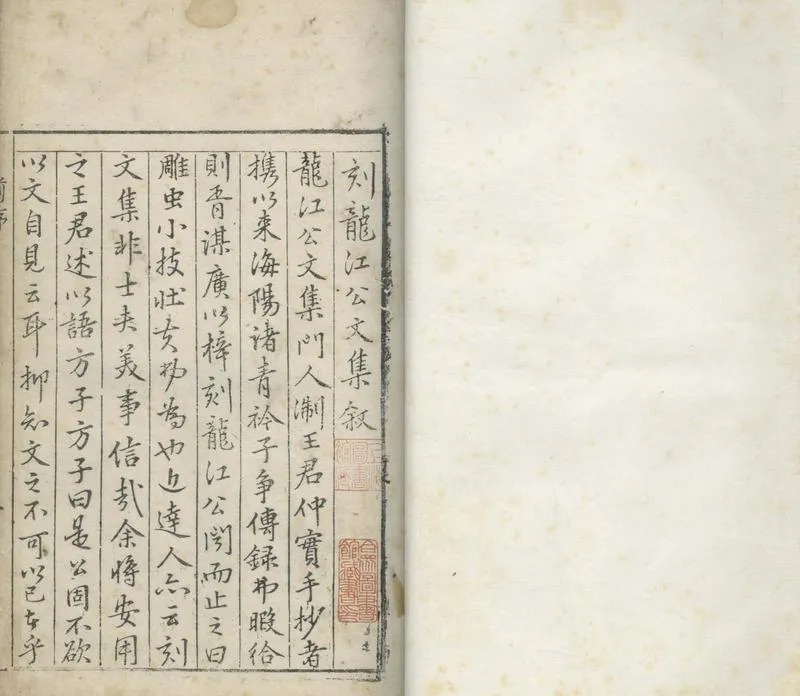 刻龍江公文集叙
龍江公文集門人淛王君仲實手抄者
携以來海陽諸青衿子争傳録弗暇給
則胥謀廣以梓刻龍江公聞而止之曰
雕虫小技壯夫弗為也近達人亦云刻
文集非士夫美事信哉余將安用
之王君述以語方子方子曰是公固不欲
以文自見云耳抑知文之不可以已乎
前序